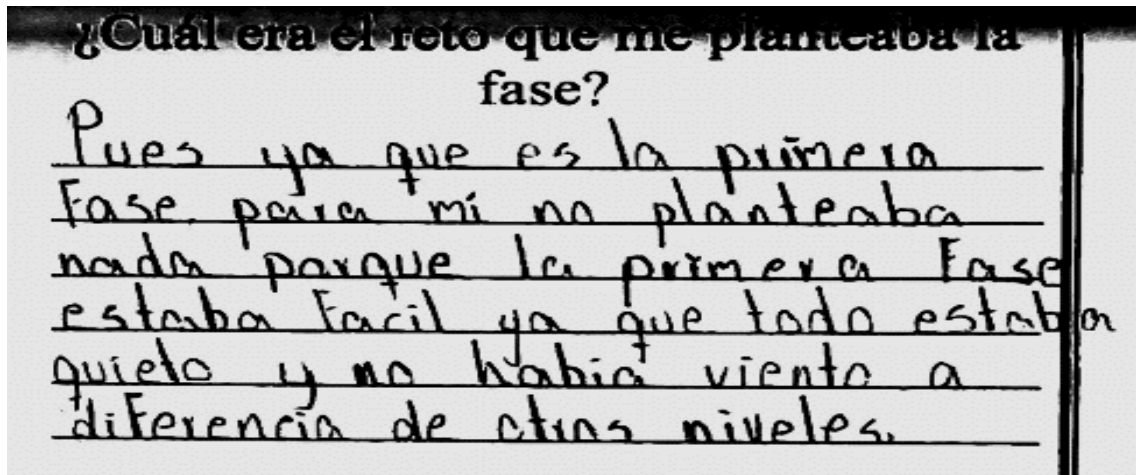 ¿Cuál era el reto que me planteaba la
fase?
Pues ya que es la primera
Fase para mí no planteaba
nada porque la primera Fase
estaba Facil ya que todo estaba
quieto y no habia viento a
diferencia de otros niveles.